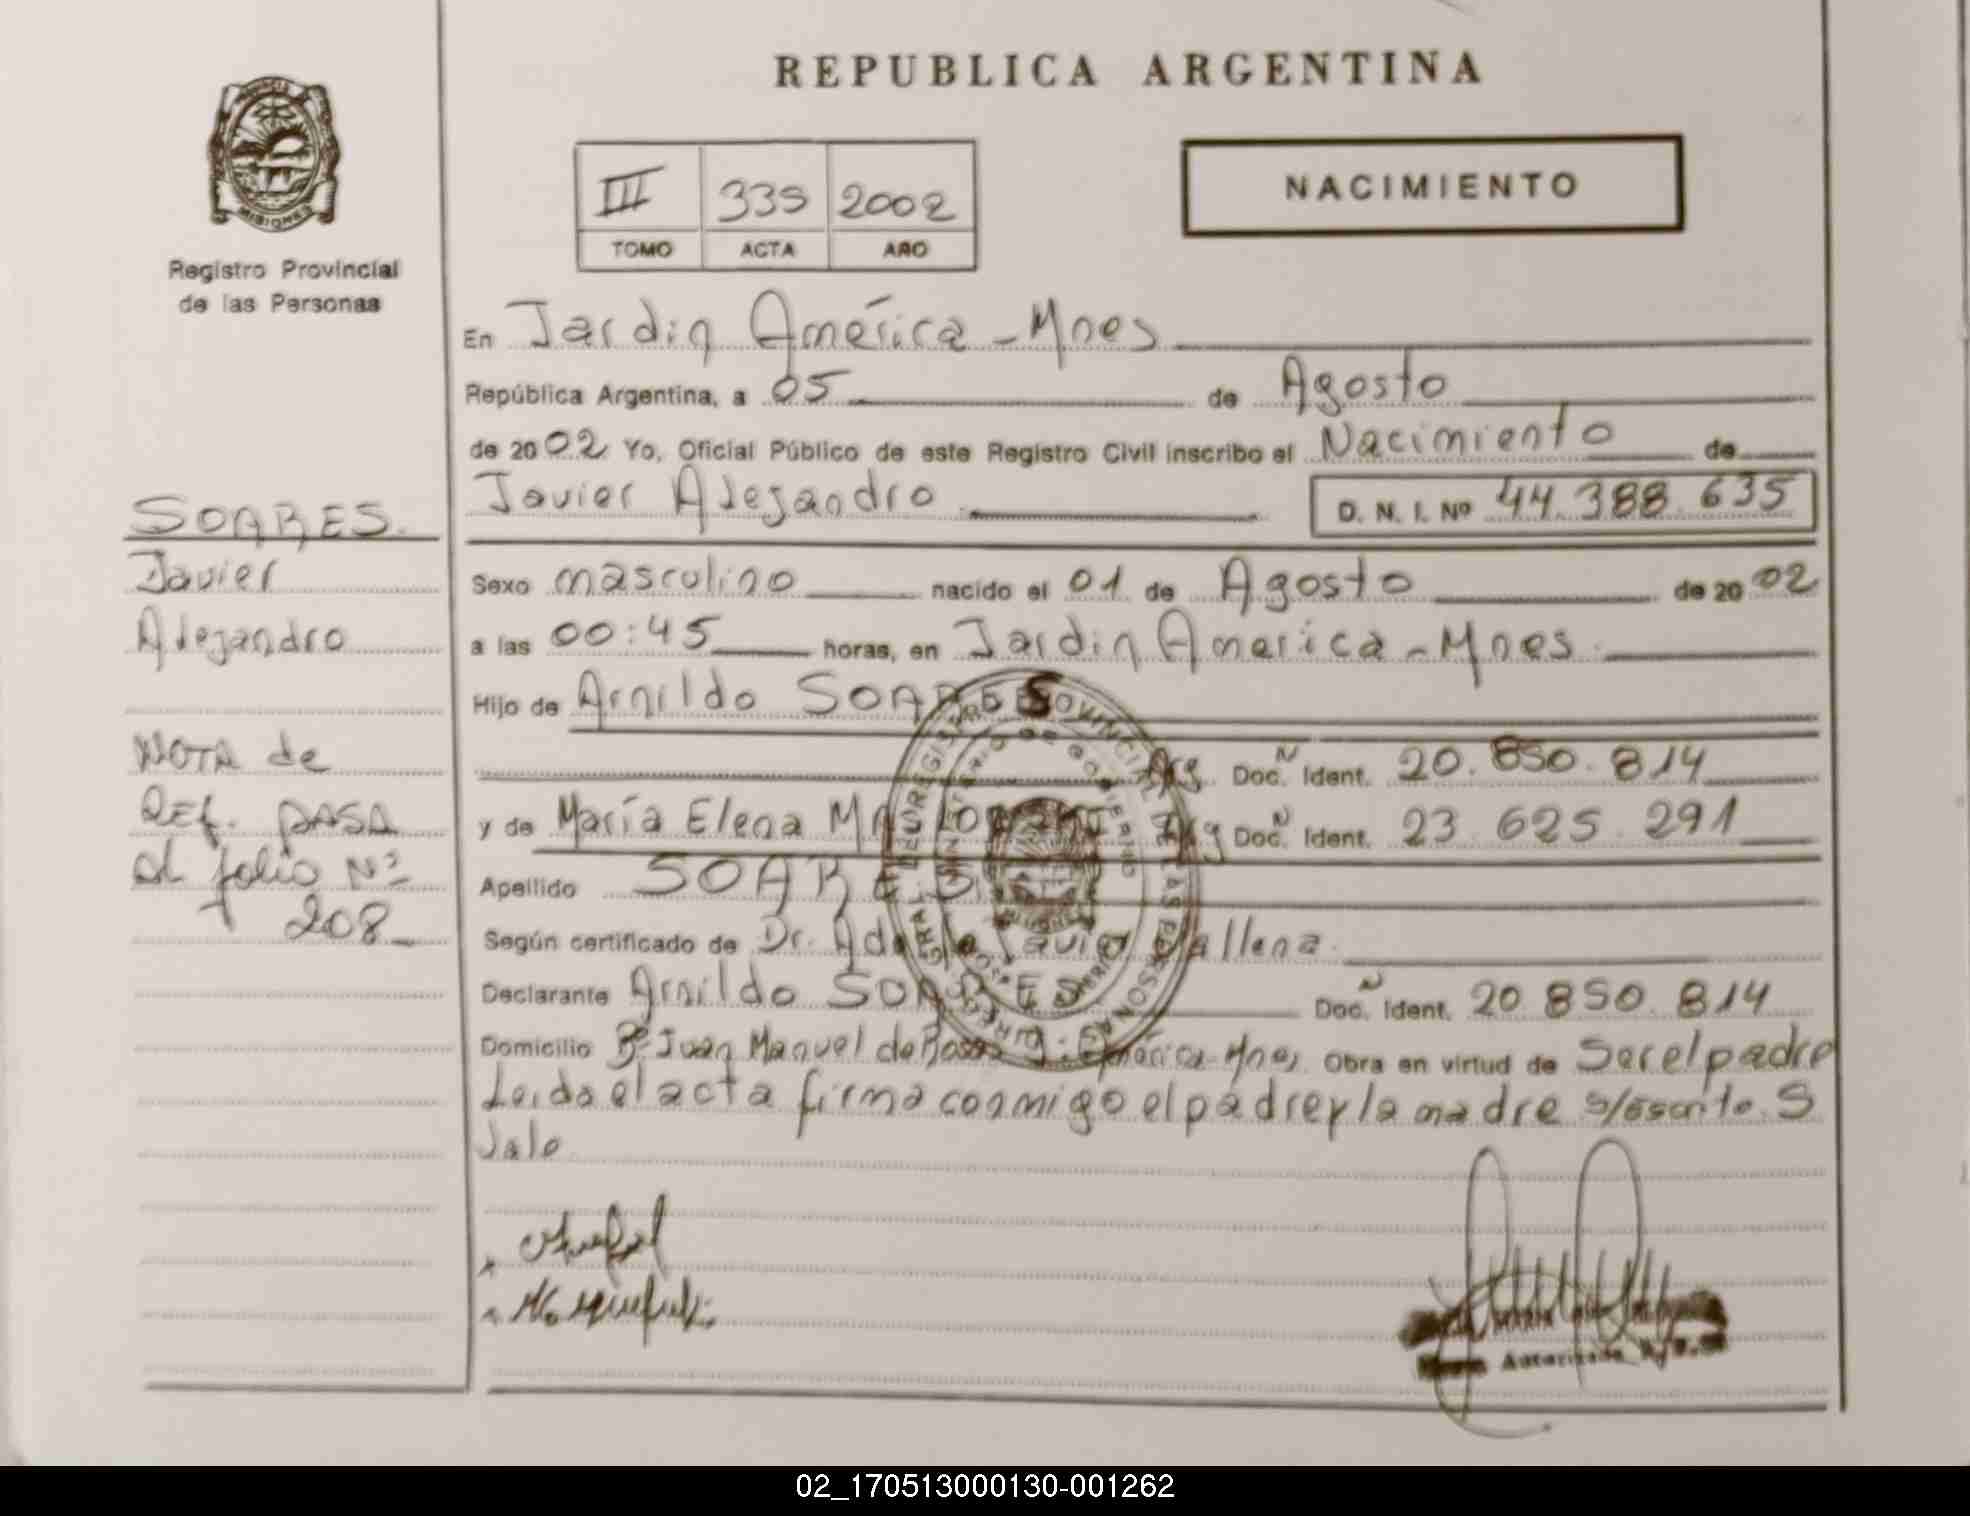 REPUBLICA ARGENTINA
PROVINCIA
MISIONES
Registro Provincial
de las Personas
III 335 2002
TOMO ACTA AÑO
NACIMIENTO
En Jardin América - Mnes
República Argentina, a 05 de Agosto
de 2002 Yo, Oficial Público de este Registro Civil inscribo el Nacimiento de
Javier Alejandro D. N. I. Nº 44.388.635
SOARES.
Javier
Alejandro
Sexo masculino nacido el 01 de Agosto de 2002
a las 00:45 horas, en Jardin America - Mnes.
Hijo de Arnildo SOARES
Arg. Doc. Ident. 20.850.814
y de María Elena Arg Doc. Ident. 23.625.291
Apellido SOARES
Según certificado de Dr. Javier
Declarante Arnildo SOARES Doc. Ident. 20.850.814
Domicilio Bº Juan Manuel de Rosas J. América-Mnes Obra en virtud de Ser el padre
Leida el acta firma conmigo el padre y la madre s/Escrito. S
Vale
NOTA de
REF. PASA
al folio Nº
208
Autorizada
02_170513000130-001262